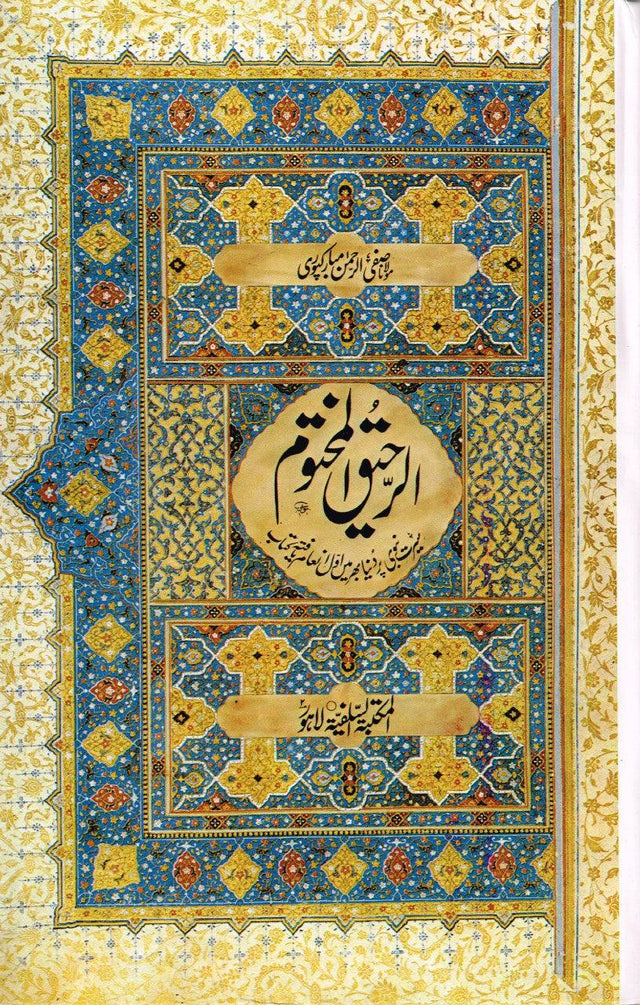 مولانا صفی الرحمٰن مبارکپوری
الرحیق المختوم
سیرت نبوی پر دنیا بھر میں اول انعام یافتہ کتاب
المکتبۃ السلفیۃ لاہور